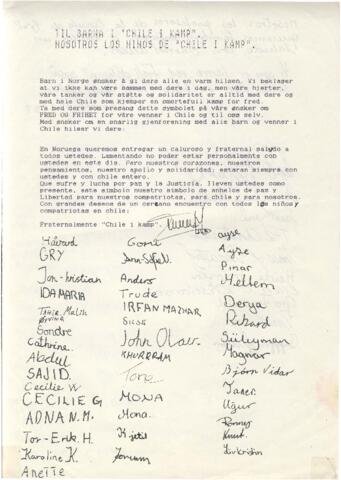 TIL BARNA I "CHILE I KAMP".
NOSOTROS LOS NINOS DE "CHILE I KAMP".
Barn i Norge ønsker å gi dere alle en varm hilsen. Vi beklager
at vi ikke kan være sammen med dere i dag, men våre hjerter,
våre tanker og vår støtte og solidaritet er alltid med dere og
med hele Chile som kjemper en smertefull kamp for fred.
Ta med dere som presang dette symbolet på våre ønsker om
FRED og FRIHET for våre venner i Chile og til oss selv.
Med ønsker om en snarlig gjenforening med alle barn og venner i
Chile hilser vi dere:
En Noruega queremos entregar un caluroso y fraternal saludo a
todos ustedes. Lamentando no poder estar personalmente con
ustedes en este dia. Pero nuestros corazones, nuestros
pensamientos, nuestro apollo y solidaridad; estaran siempre con
ustedes y con chile entero.
Que sufre y lucha por paz y la Justicia, lleven ustedes como
presente, este simbolo nuestro simbolo de anhelos de paz y
Libertad para nuestros compatriotas, para chile y para nosotros.
Con grandes deseos de un cercano encuentro con todos los niños y
compatriotas en chile:
Fraternalmente "Chile i kamp".
Håvard
GRY
Jon-Kristian
IDA MARIA
Tahir Malik
Øivind
Sondre
Cathrine.
Abdul
SAJID.
Cecilie W
CECILIE G
ADNAN.M.
Tor-Erik.H.
Karoline K.
Anette
Anders
Trude
IRFAN MAZHAR
John Olav
KHURRRAM
Tone
MONA
Mona.
Kjetil
ayse
Ayse
Pinar
Mellem
Derya
Rikard
Süleyman
Magnar
Bjørn Vidar
Taner
Uğur
Ronny
Knut
Liv kristin